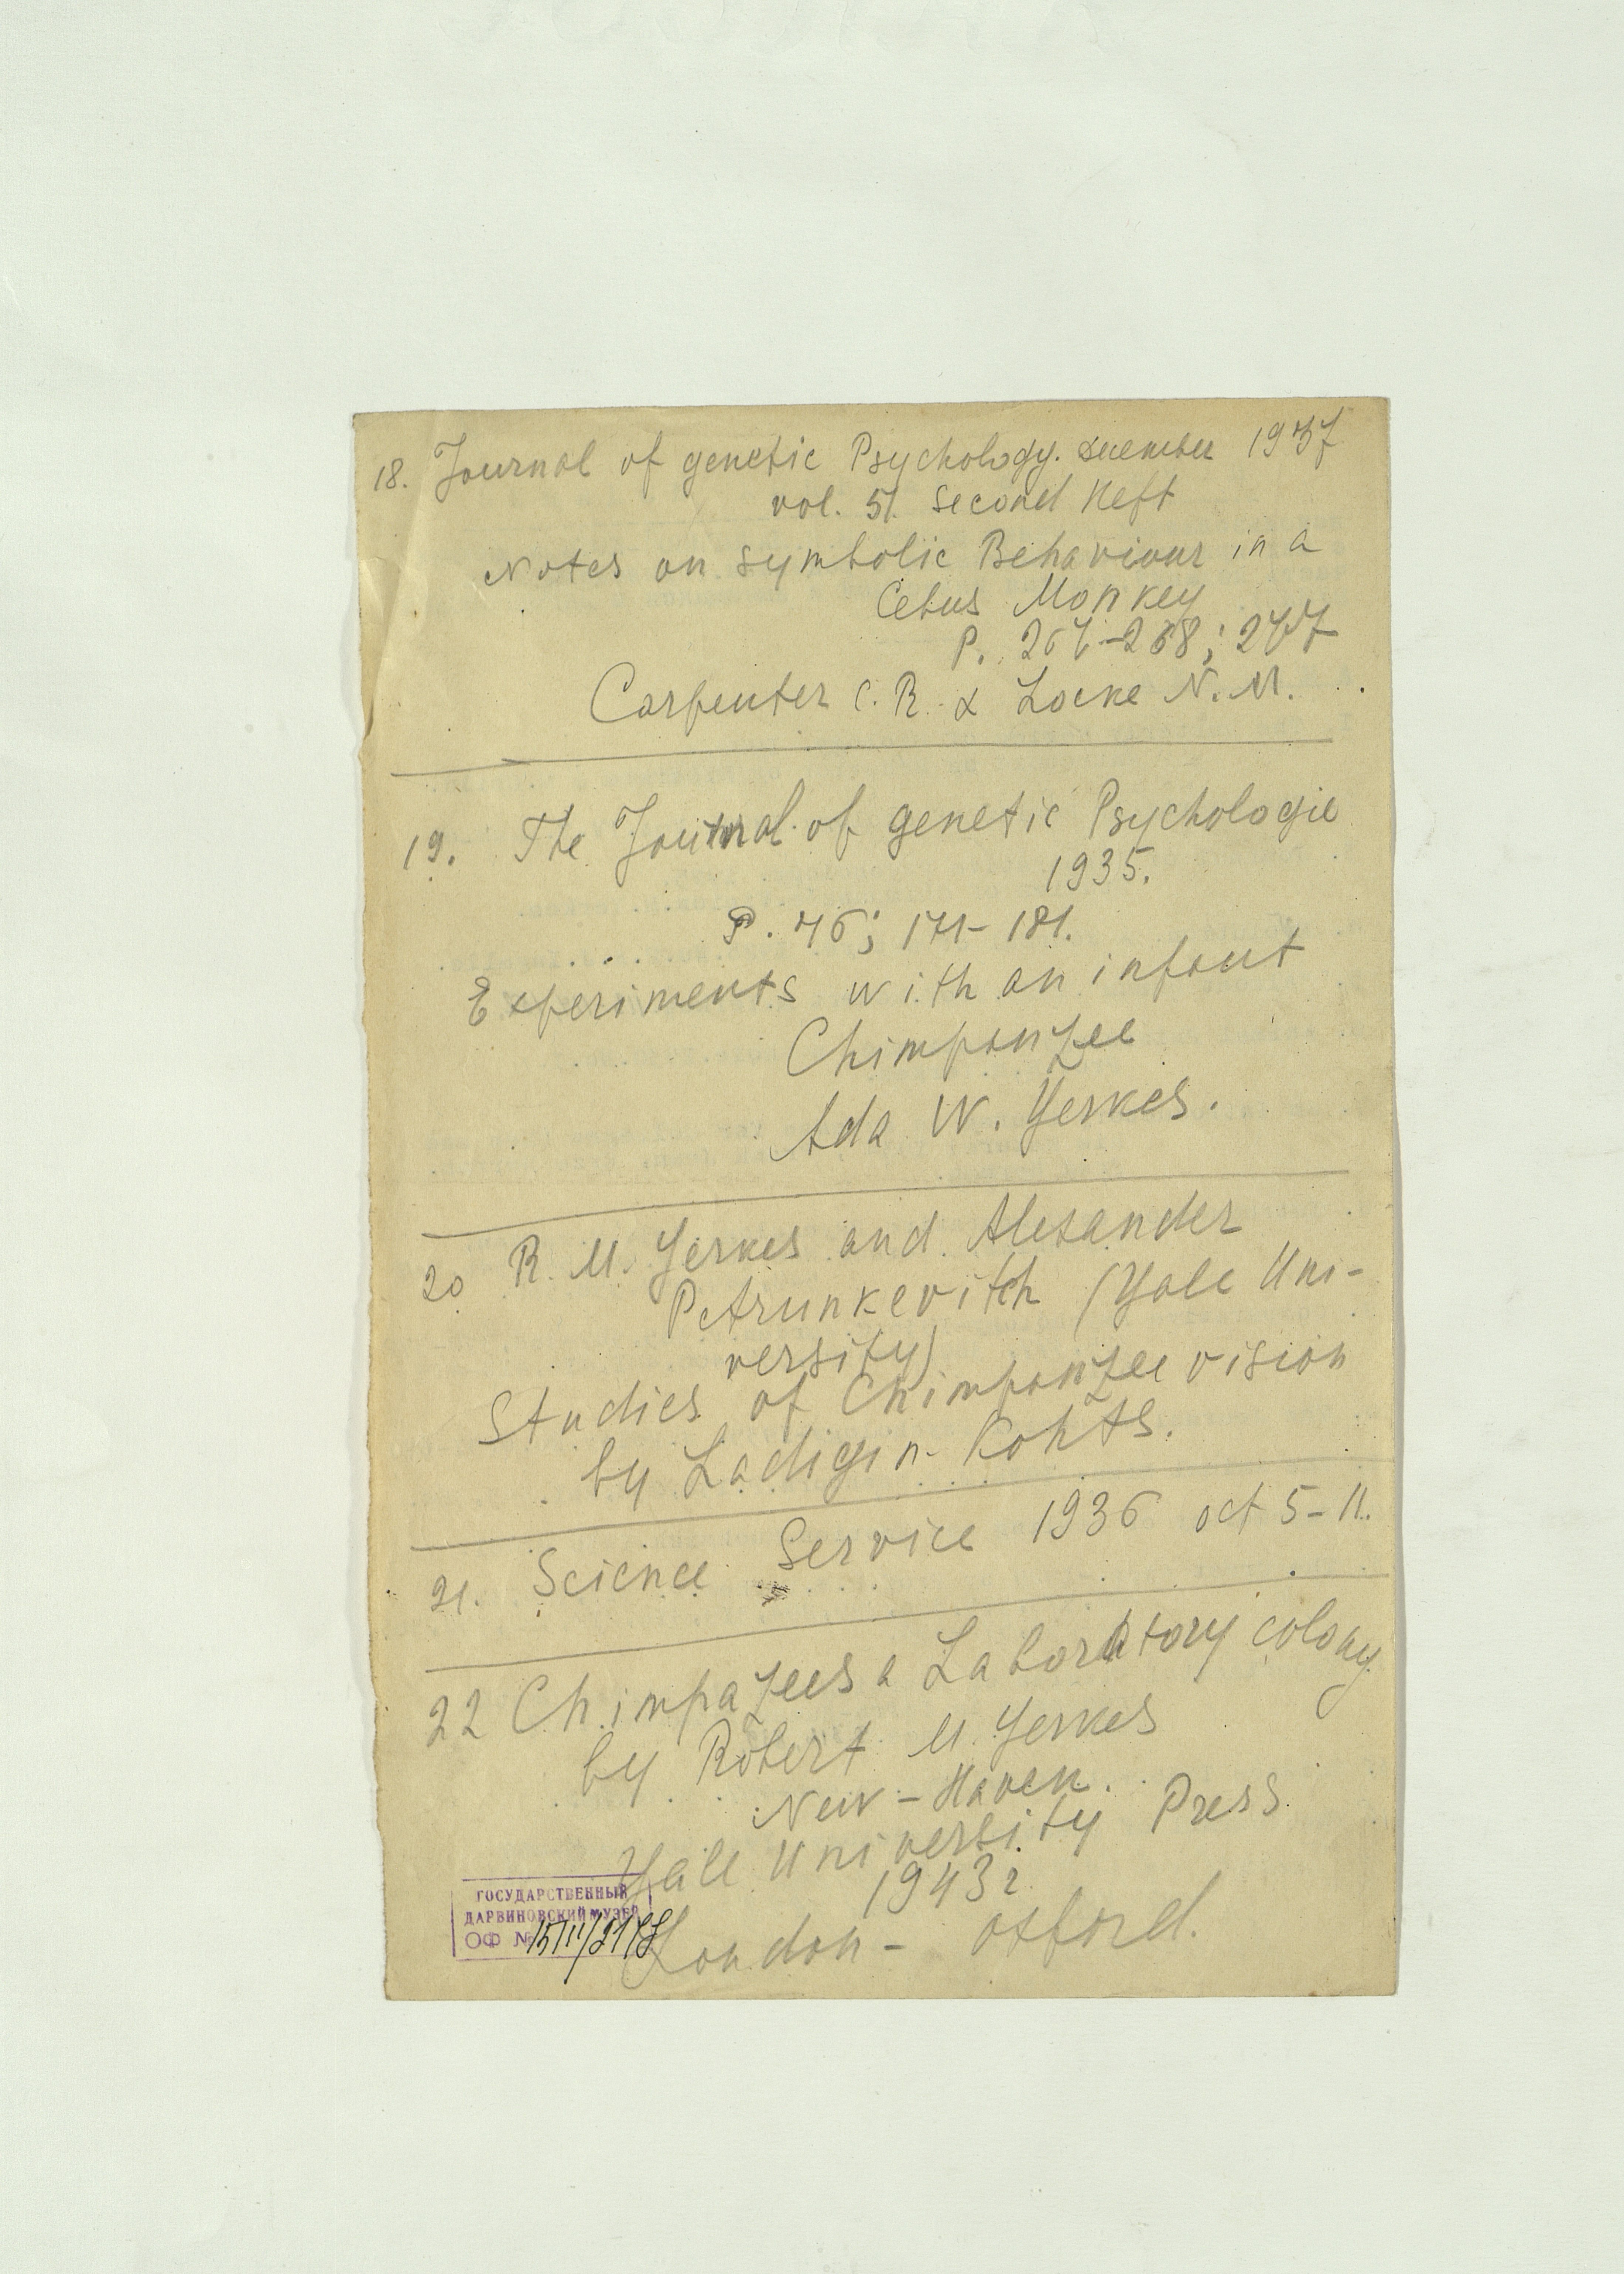 18. Journal of genetic Psychology. December 1937
vol. 51. Second Heft
Notes on symbolic Behaviour in a
Cebus Monkey
P. 267-268; 277
Carpenter C. R. & Locke N. M.
19. The Journal of genetic Psychologie
1935.
P. 46; 171-181.
Experiments with an infant
Chimpanzee
Ada W. Yerkes.
20 R. M. Yerkes and Alexander
Petrunkevitch (Yale Uni-
versity)
Studies of Chimpanzee vision
by Ladigin-Kohts.
21. Science Service 1936 oct 5-11.
22 Chimpazees a Laboratory colony
by Robert M. Yerkes
New-Haven.
Yale University Press
1943 г
London - Oxford.
ГОСУДАРСТВЕННЫЙ
ДАРВИНОВСКИЙ МУЗЕЙ
ОФ №